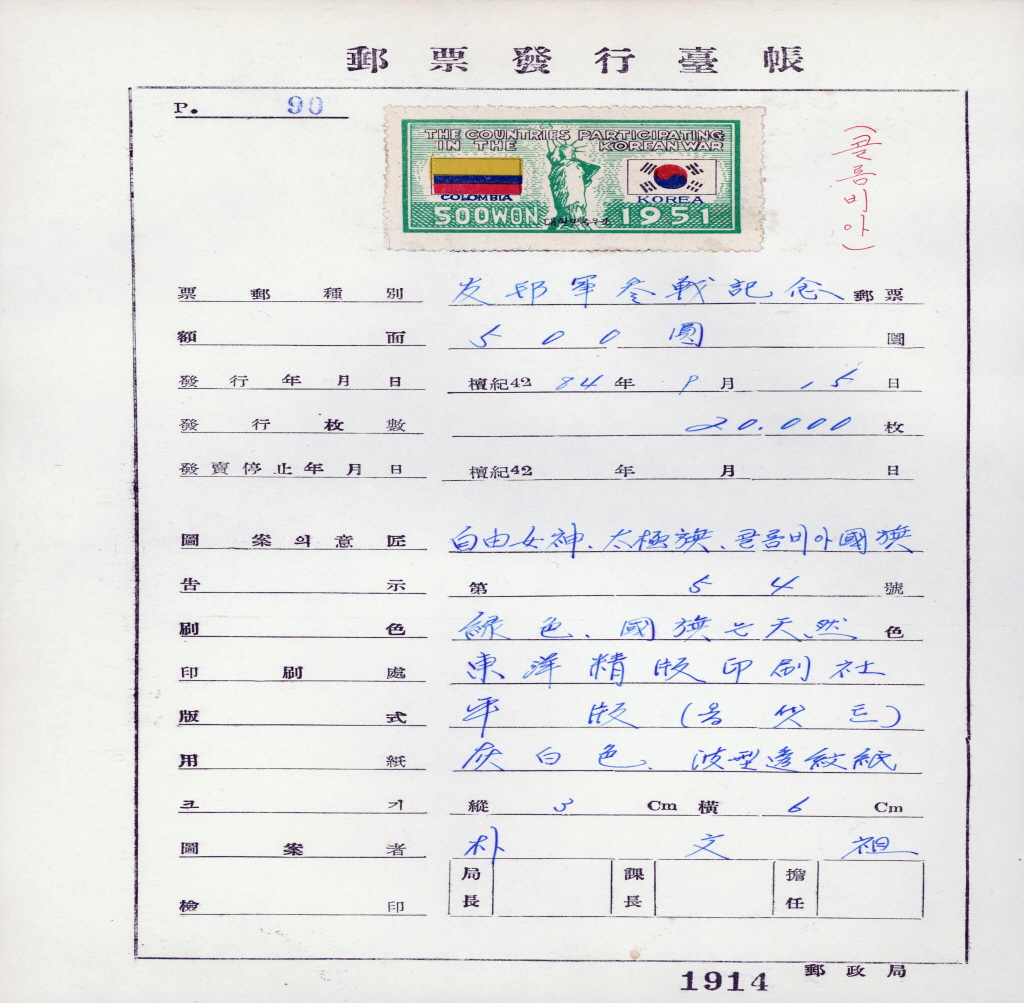 郵票發行臺帳
P. 90
THE COUNTRIES PARTICIPATING
IN THE KOREAN WAR
COLOMBIA KOREA
500WON 1951
(콜롬비아)
票郵種別 友邦軍參戰記念郵票
額面 500圓 圜
發行年月日 檀紀4284年9月15日
發行枚數 20.000枚
發賣停止年月日 檀紀42 年 月 日
圖案의意匠 自由女神、太極旗、콜롬비아國旗
告示 第 54 號
刷色 緑色、國旗는天然色
印刷處 東洋精版印刷社
版式 平版(옵셋트)
用紙 灰白色、波型透紋紙
크기 縱 3 Cm 橫 6 Cm
圖案者 朴文祖
檢印 局長 課長 擔任
1914 郵政局